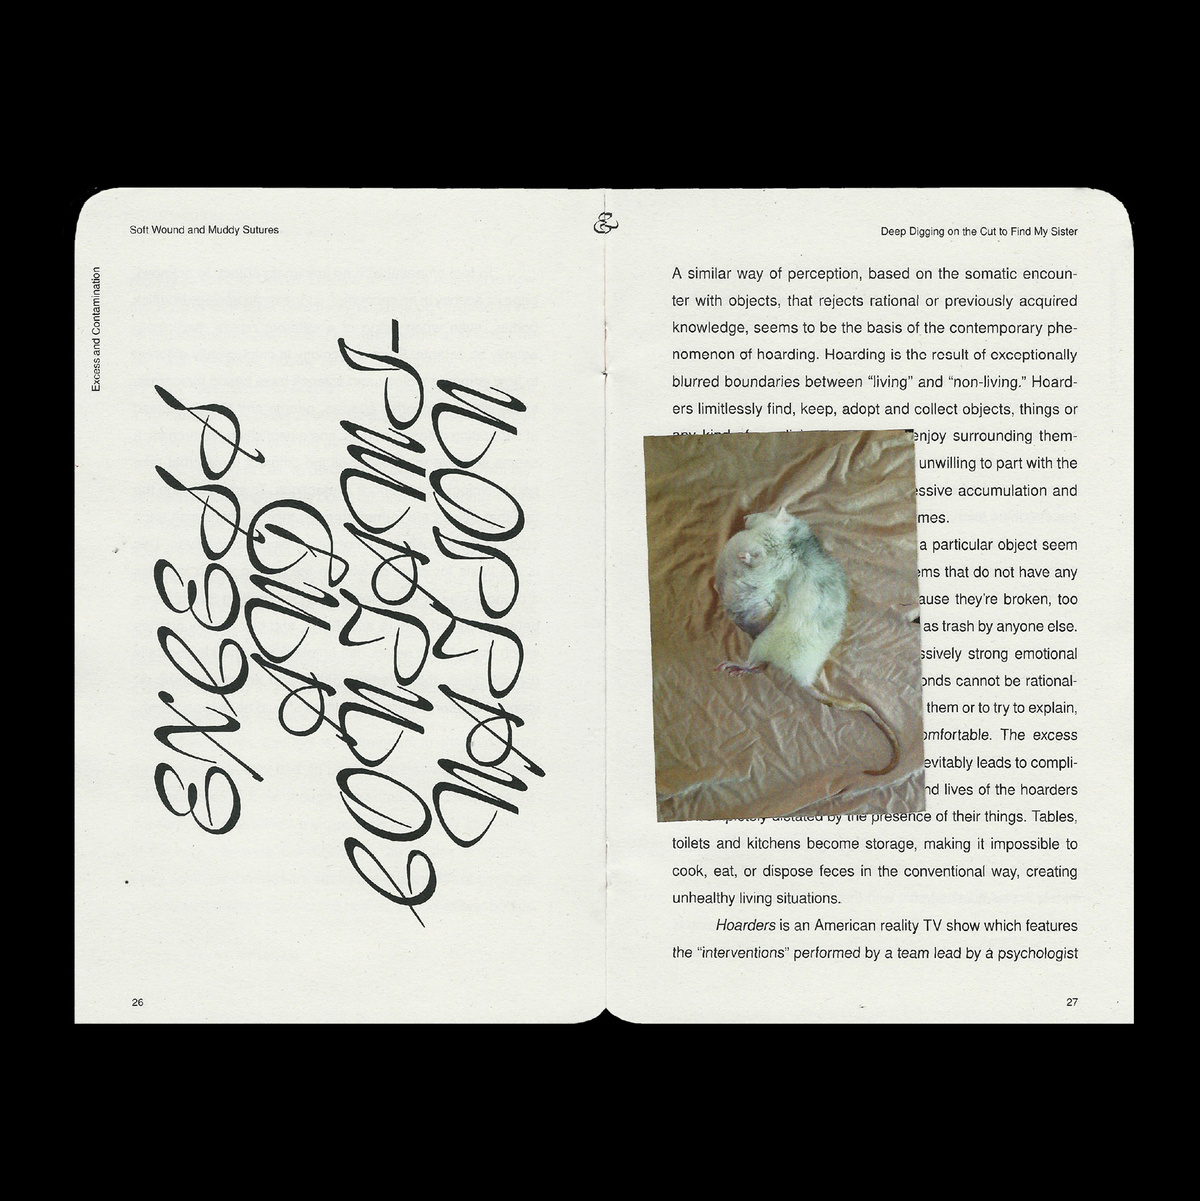 Soft Wound and Muddy Sutures
Excess and Contamination
EXCESS
AND
CONTAMI-
NATION
26
&
Deep Digging on the Cut to Find My Sister
A similar way of perception, based on the somatic encoun-
ter with objects, that rejects rational or previously acquired
knowledge, seems to be the basis of the contemporary phe-
nomenon of hoarding. Hoarding is the result of exceptionally
blurred boundaries between “living” and “non-living.” Hoard-
ers limitlessly find, keep, adopt and collect objects, things or
any kind of enjoy surrounding them-
unwilling to part with the
essive accumulation and
mes.
a particular object seem
ems that do not have any
ause they’re broken, too
as trash by anyone else.
ssively strong emotional
onds cannot be rational-
them or to try to explain,
omfortable. The excess
evitably leads to compli-
nd lives of the hoarders
dictated by the presence of their things. Tables,
toilets and kitchens become storage, making it impossible to
cook, eat, or dispose feces in the conventional way, creating
unhealthy living situations.
Hoarders is an American reality TV show which features
the “interventions” performed by a team lead by a psychologist
27